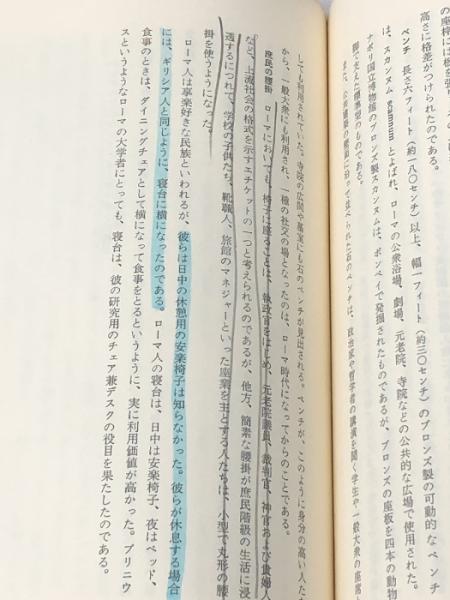 の座枠には板を張
高さに格差がつけられたのである。
ベンチ 長さ六フィート（約一八〇センチ）以上、幅一フィート（約三〇センチ）のブロンズ製の可動的なベンチ
は、スカンヌム scamnum とよばれ、ローマの公衆浴場、劇場、元老院、寺院などの公共的な広場で使用された。
ナポリ国立博物館のブロンズ製スカンヌムは、ポンペイで発掘されたものであるが、ブロンズの座板を四本の動物
脚で支えた標準型のものである。
また、公共建造物の壁面に沿って並べられた石のベンチは、政治家や哲学者の講演を聞く学生や一般大衆の座席と
しても利用されていた。寺院の広間や墓室にも石のベンチが見出される。ベンチが、このように身分の高い人た
から、一般大衆にも利用され、一種の社交の場となったのは、ローマ時代になってからのことである。
庶民の腰掛 ローマにおいても、椅子に座ることは、執政官をはじめ、元老院議員、裁判官、神官および貴婦人
など、上流社会の格式を示すエチケットの一つと考えられるのであるが、他方、簡素な腰掛が庶民階級の生活に浸
透するにつれて、学校の子供たち、靴職人、旅館のマネジャーといった座業を主とする人たちは、小型で丸形の腰
掛を使うようになった。
ローマ人は事楽好きな民族といわれるが、彼らは日中の休憩用の安楽椅子は知らなかった。彼らが休息する場合
には、ギリシア人と同じように、寝台に横になったのである。ローマ人の寝台は、日中は安楽椅子、夜はベッド、
食事のときは、ダイニングチェアとして横になって食事をとるというように、実に利用価値が高かった。プリニウ
スというようなローマの大学者にとっても、寝台は、彼の研究用のチェア兼デスクの役目を果たしたのである。